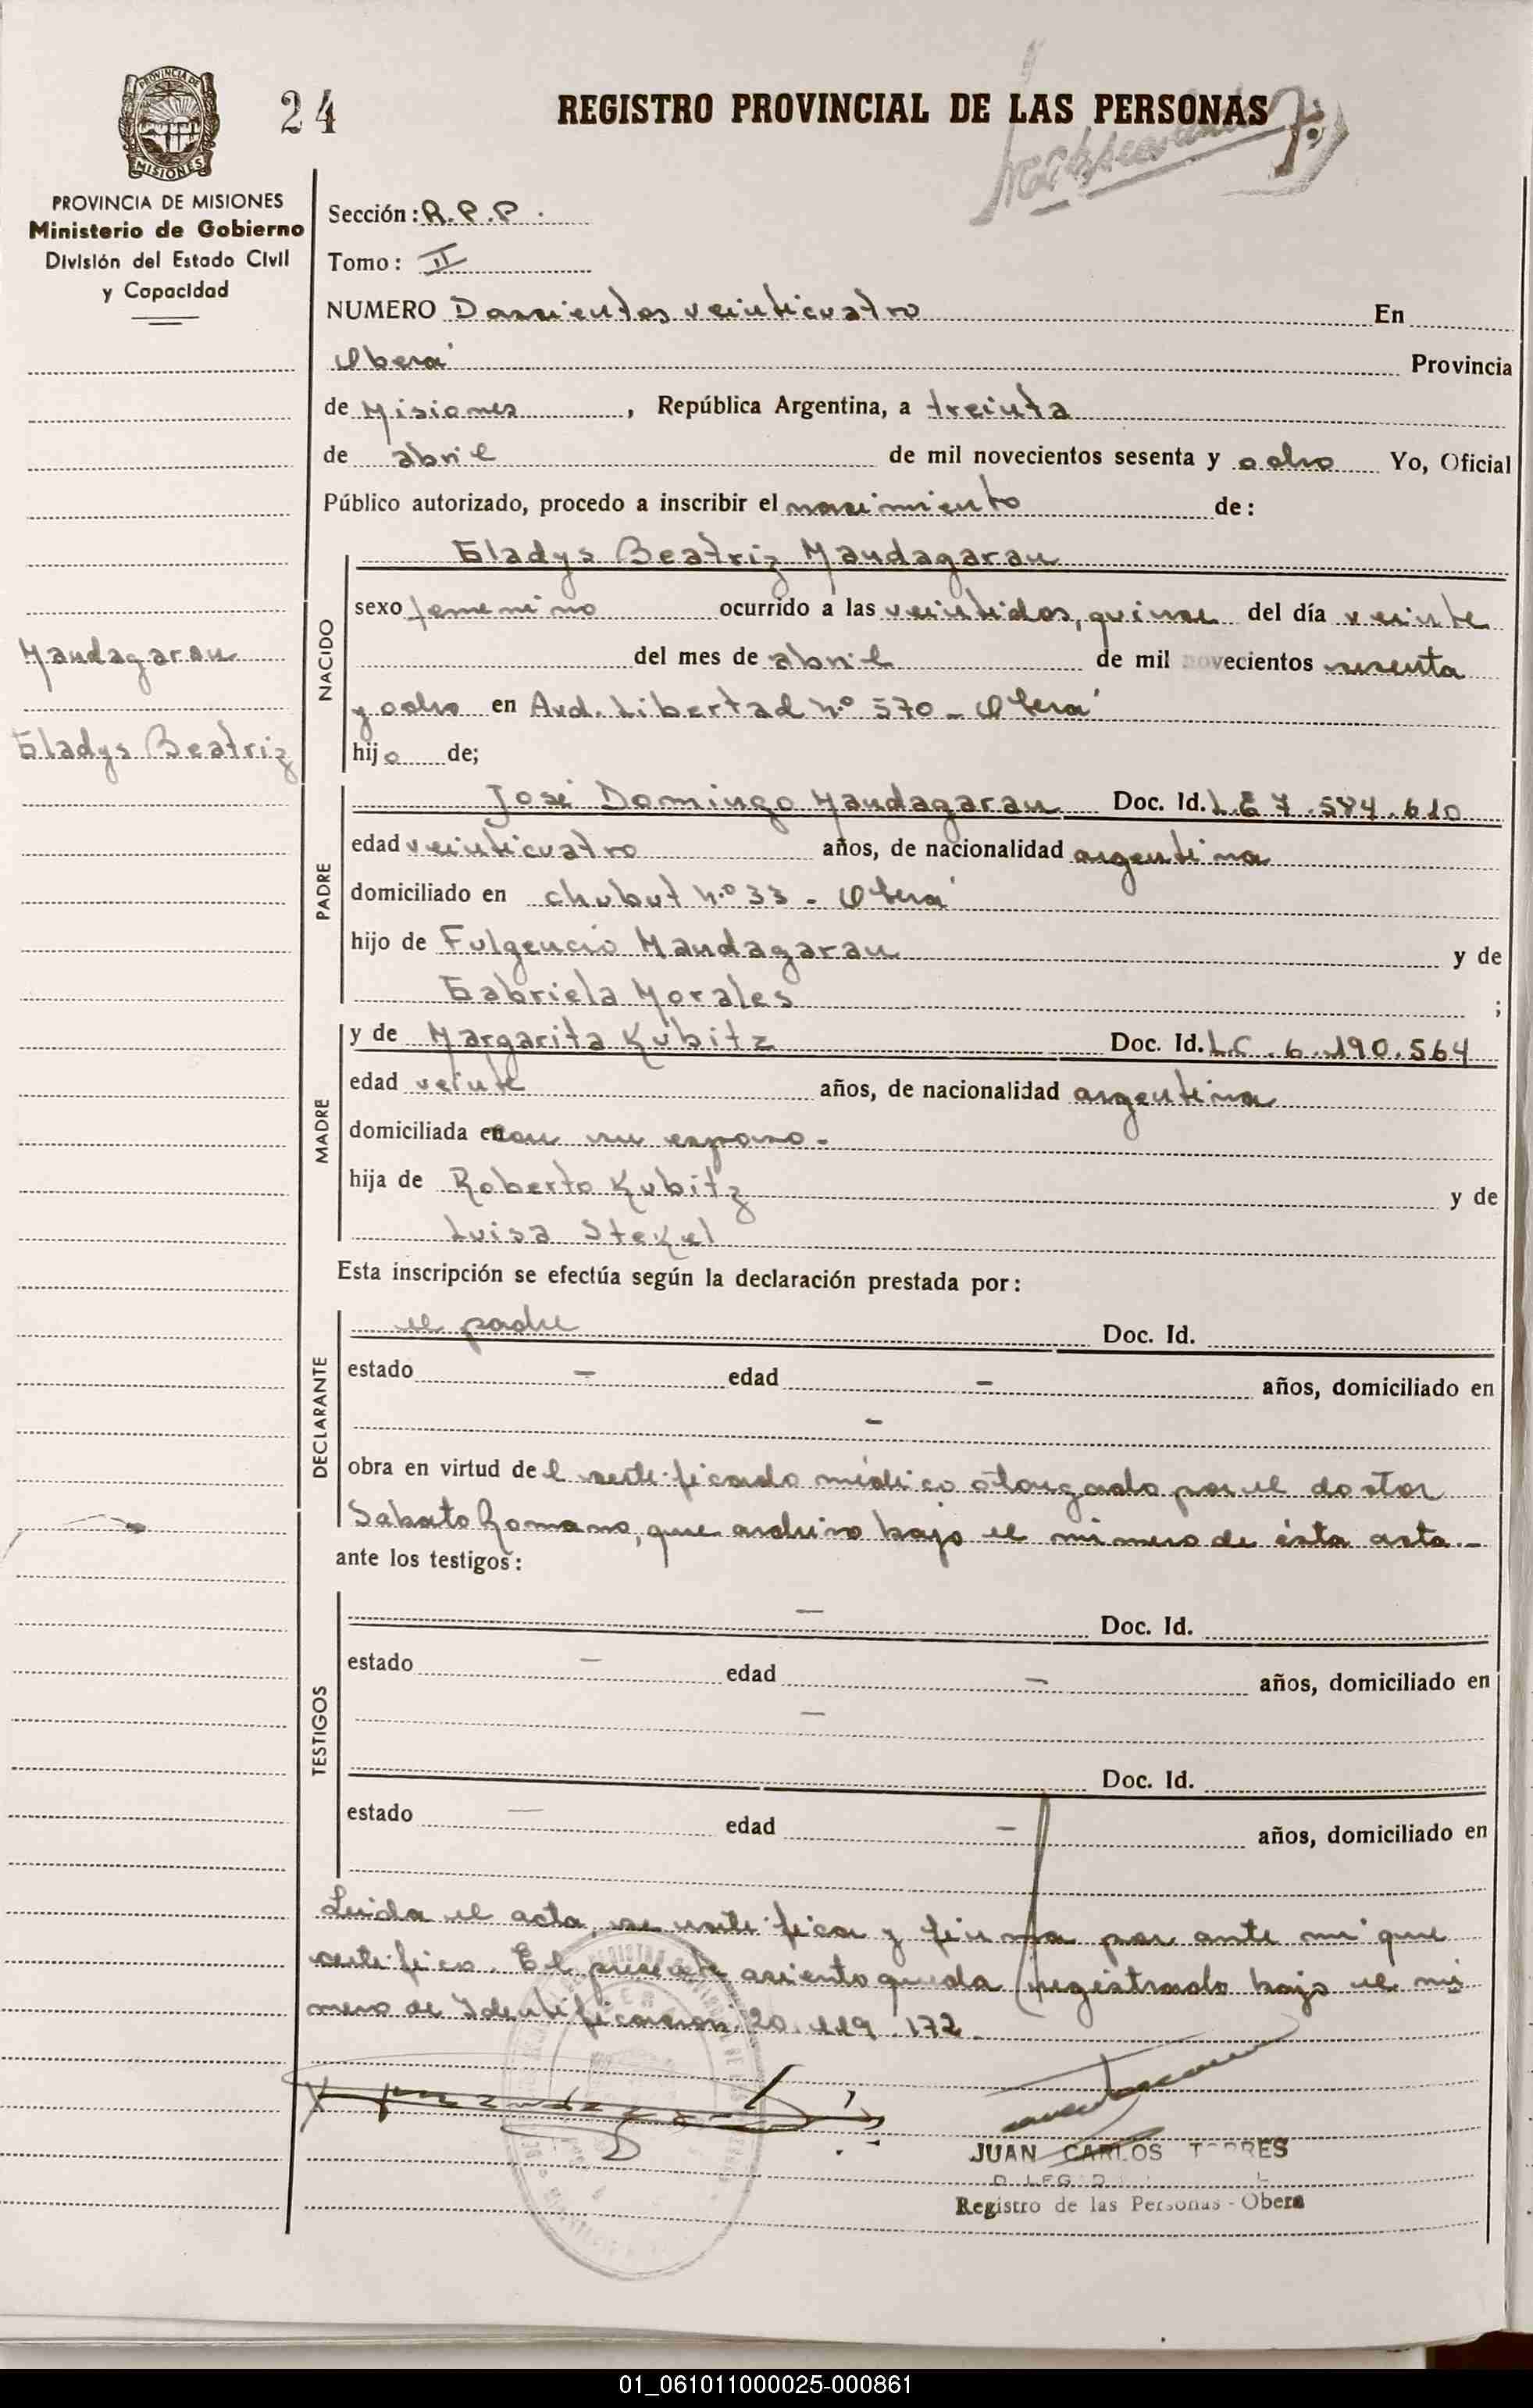 24
REGISTRO PROVINCIAL DE LAS PERSONAS
PROVINCIA DE
MISIONES
PROVINCIA DE MISIONES
Ministerio de Gobierno
División del Estado Civil
y Capacidad
Sección: R.P.P.
Tomo: II
NUMERO Doscientos veinticuatro En
Oberá Provincia
de Misiones, República Argentina, a treinta
de abril de mil novecientos sesenta y ocho Yo, Oficial
Público autorizado, procedo a inscribir el nacimiento de:
Mandagaran
Gladys Beatriz
NACIDO
Gladys Beatriz Mandagaran
sexo femenino ocurrido a las veintidos, quince del día veinte
del mes de abril de mil novecientos sesenta
y ocho en Avd. Libertad N.º 570 - Oberá
hijo de;
PADRE
José Domingo Mandagaran Doc. Id. L.E 7.584.610
edad veinticuatro años, de nacionalidad argentina
domiciliado en chubut N.º 33 - Oberá
hijo de Fulgencio Mandagaran y de
Gabriela Morales ;
MADRE
y de Margarita Kubitz Doc. Id. L.C. 6.190.564
edad veinte años, de nacionalidad argentina
domiciliada en con su esposo.-
hija de Roberto Kubitz y de
Luisa Stekel
Esta inscripción se efectúa según la declaración prestada por:
DECLARANTE
el padre Doc. Id.
estado - edad - años, domiciliado en
-
obra en virtud del certificado médico otorgado por el doctor
Sabato Romano, que archivo bajo el número de ésta acta.-
ante los testigos:
TESTIGOS
- Doc. Id.
estado - edad - años, domiciliado en
-
Doc. Id.
estado - edad - años, domiciliado en
Leida el acta, se ratifica y firma por ante mi que
certifico. El presente asiento queda registrado bajo el nú
mero de Identificación: 20.119.172.
JUAN CARLOS TORRES
Registro de las Personas - Obera
01_061011000025-000861